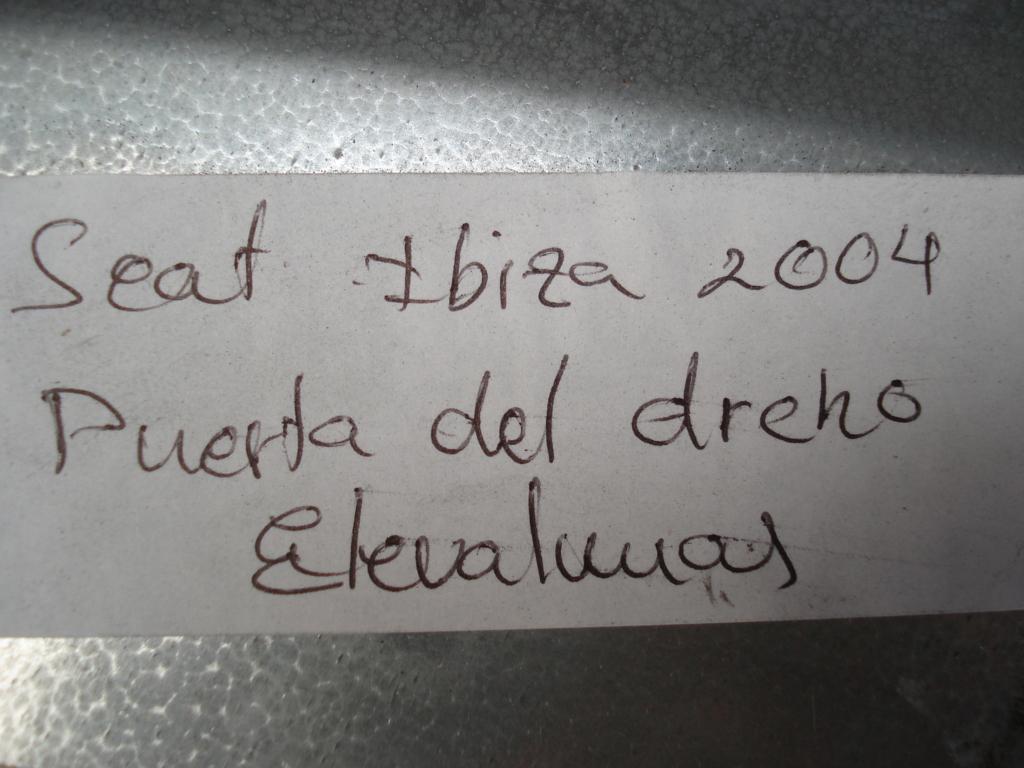 Seat Ibiza 2004
Puerta del dreho
Elevalunas